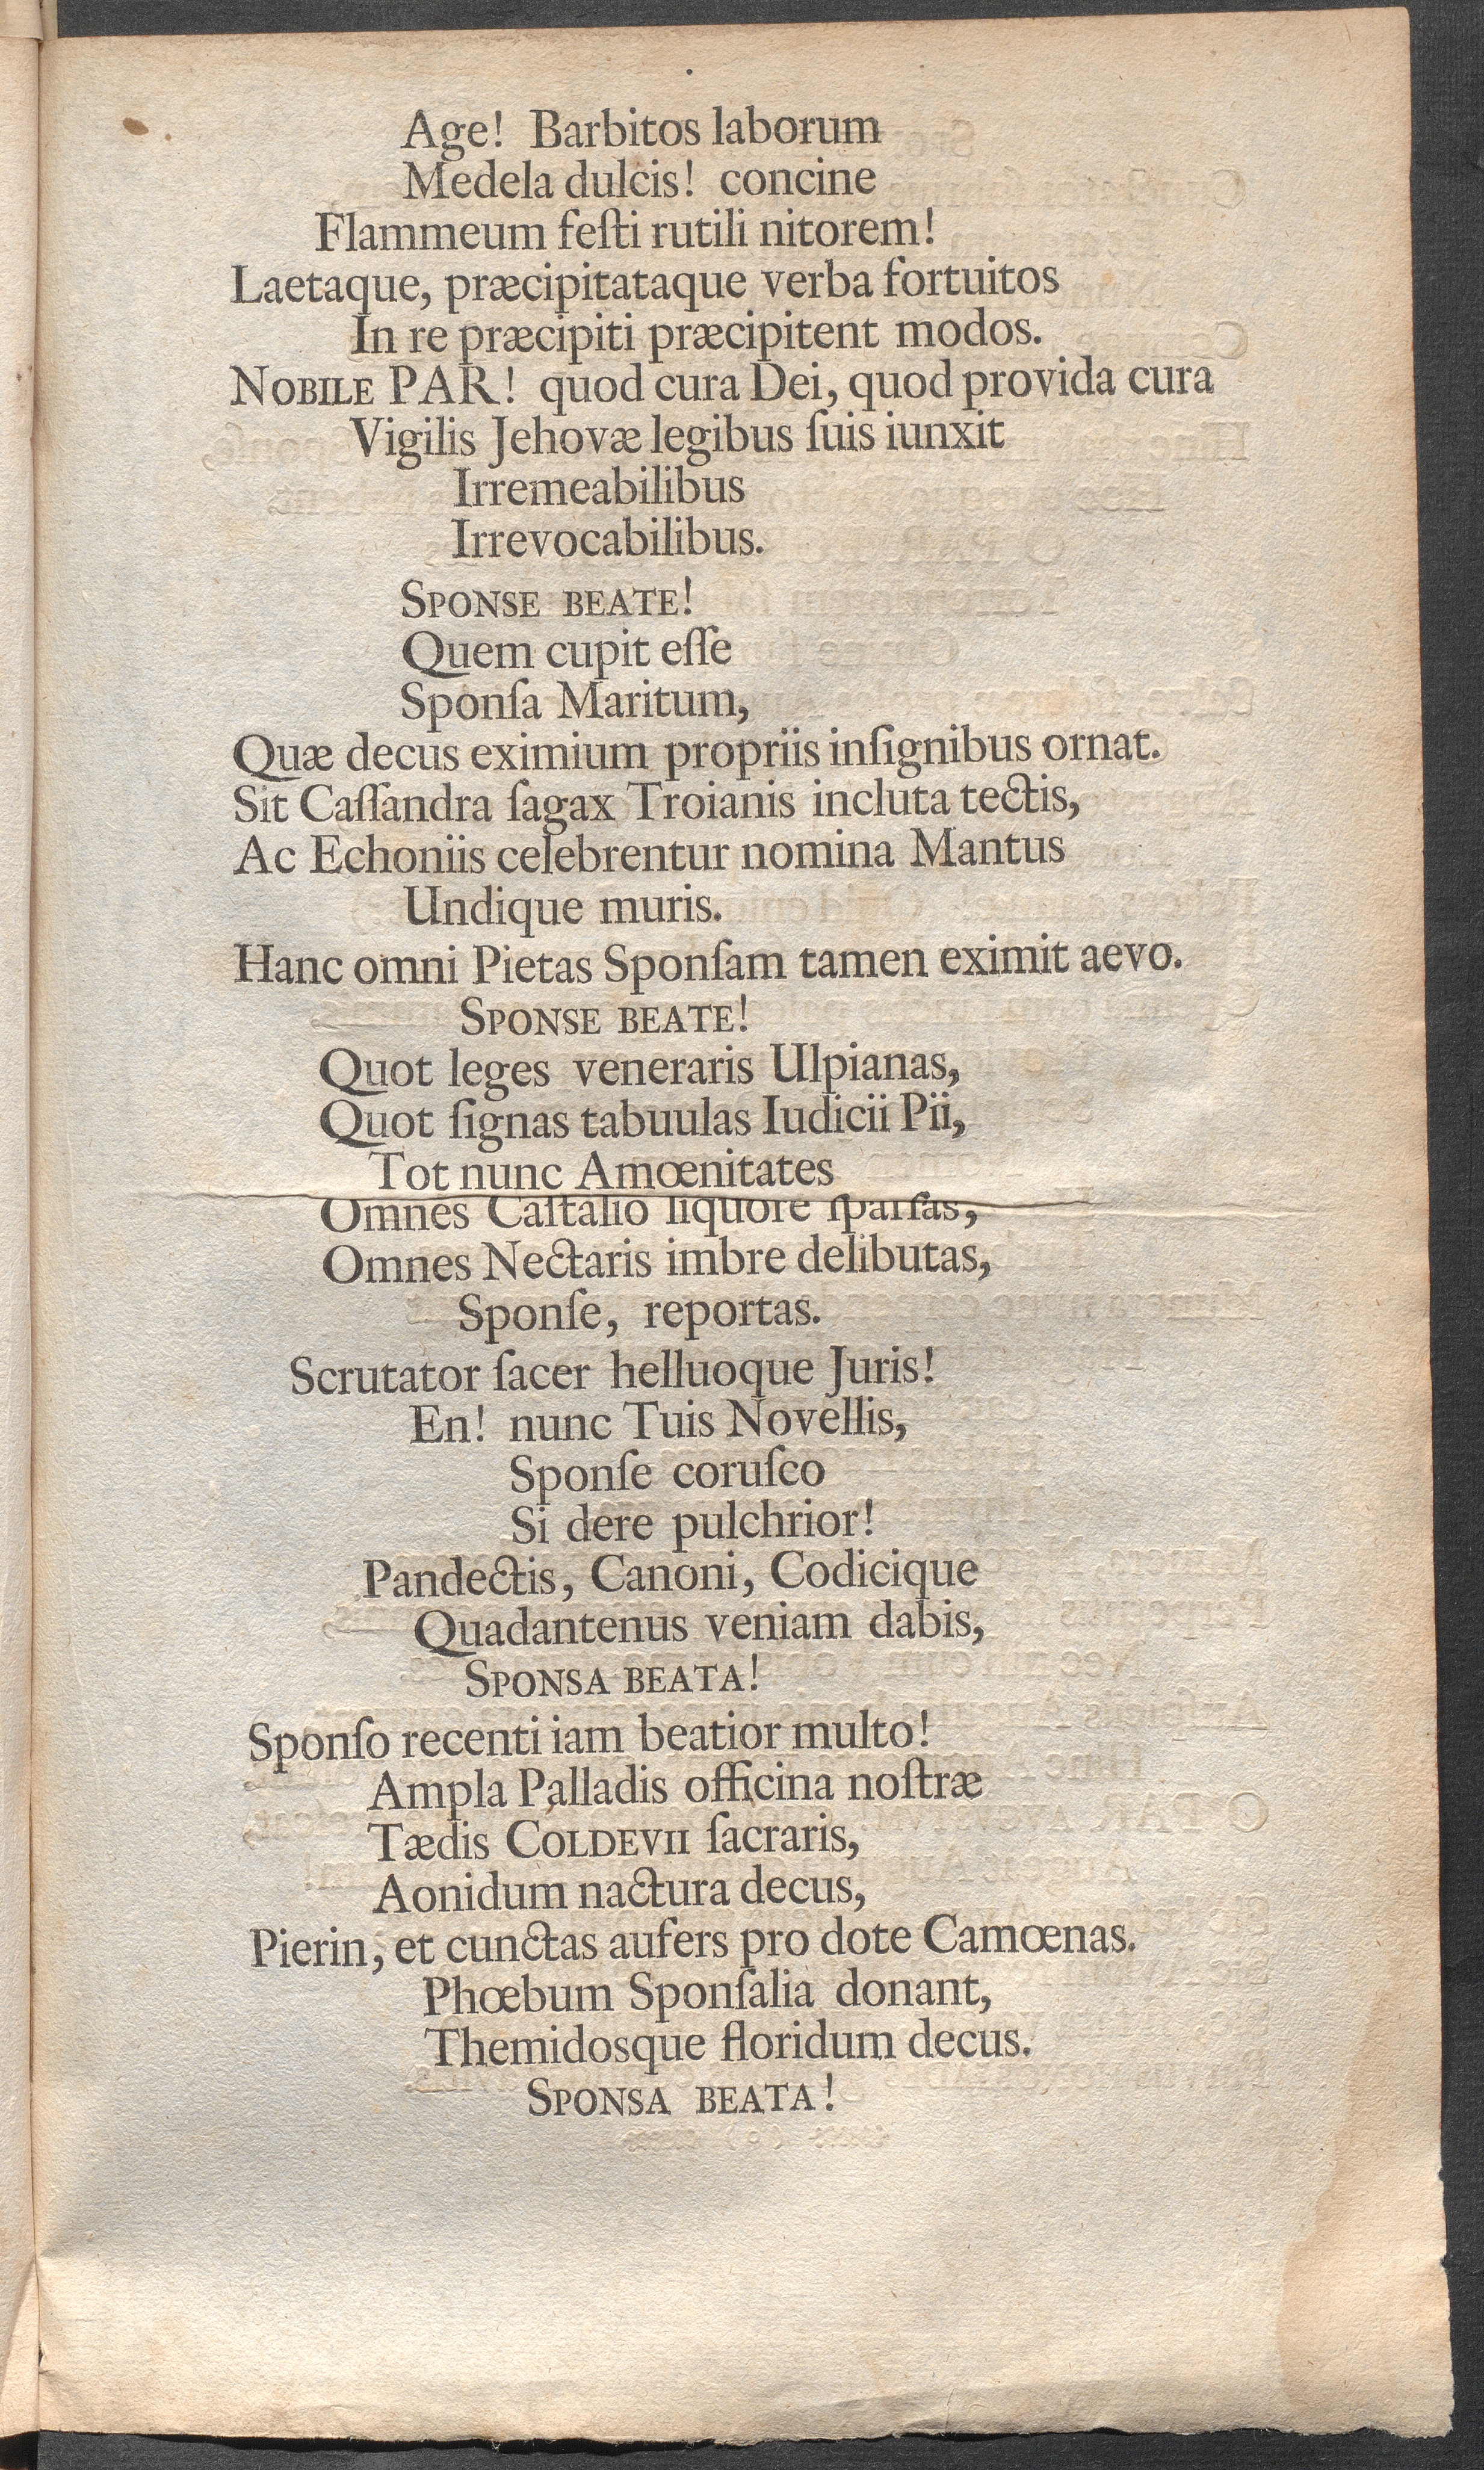 Age! Barbitos laborum
Medela dulcis! concine
Flammeum feſti rutili nitorem!
Laetaque, præcipitataque verba fortuitos
In re præcipiti præcipitent modos.
NOBILE PAR! quod cura Dei, quod provida cura
Vigilis Jehovæ legibus ſuis iunxit
Irremeabilibus
Irrevocabilibus.
SPONSE BEATE!
Quem cupit eſſe
Sponſa Maritum,
Quæ decus eximium propriis inſignibus ornat.
Sit Caſſandra ſagax Troianis incluta tectis,
Ac Echoniis celebrentur nomina Mantus
Undique muris.
Hanc omni Pietas Sponſam tamen eximit aevo.
SPONSE BEATE!
Quot leges veneraris Ulpianas,
Quot ſignas tabuulas Iudicii Pii,
Tot nunc Amœnitates
Omnes Caſtalio liquore ſparſas,
Omnes Nectaris imbre delibutas,
Sponſe, reportas.
Scrutator ſacer helluoque Juris!
En! nunc Tuis Novellis,
Sponſe coruſco
Si dere pulchrior!
Pandectis, Canoni, Codicique
Quadantenus veniam dabis,
SPONSA BEATA!
Sponſo recenti iam beatior multo!
Ampla Palladis officina noſtræ
Tædis COLDEVII ſacraris,
Aonidum nactura decus,
Pierin, et cunctas aufers pro dote Camœnas.
Phœbum Sponſalia donant,
Themidosque floridum decus.
SPONSA BEATA!